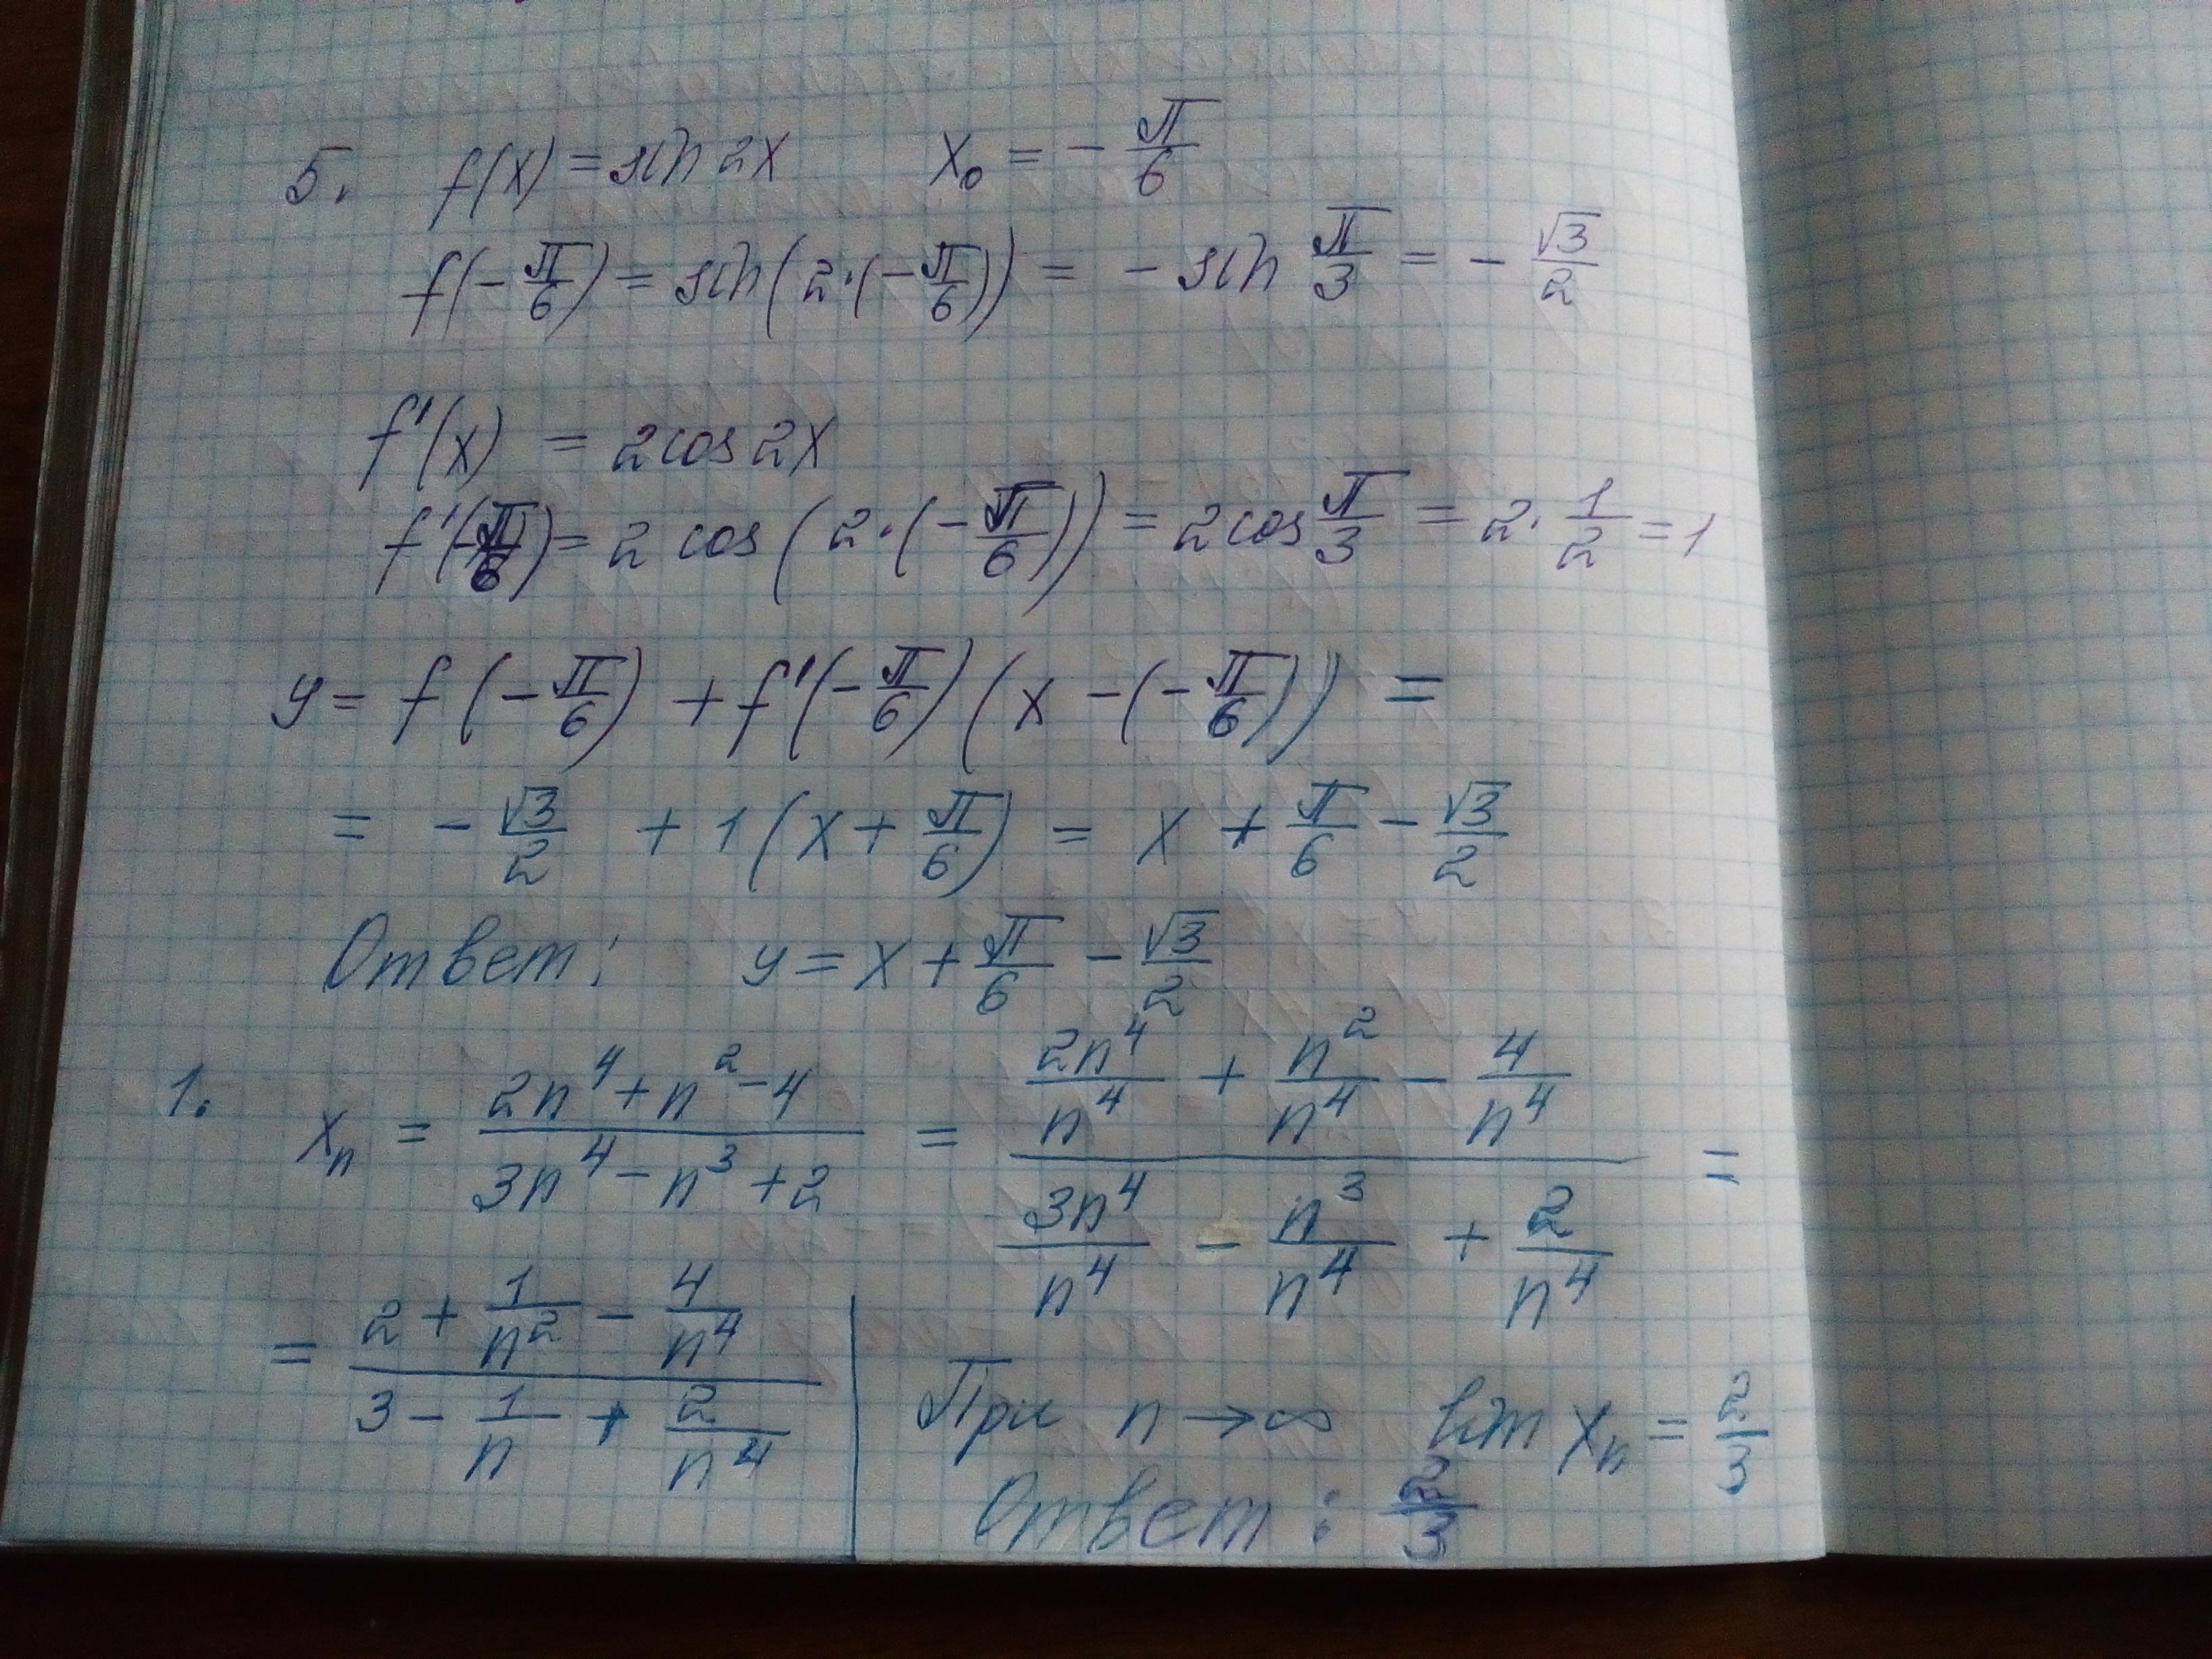 5. f(x) = sin 2x x₀ = - π/6
f(-π/6) = sin(2·(-π/6)) = - sin π/3 = - √3/2
f'(x) = 2cos 2x
f'(-π/6) = 2 cos (2·(-π/6)) = 2cos π/3 = 2·1/2 = 1
y = f(-π/6) + f'(-π/6)(x-(-π/6)) =
= - √3/2 + 1(x + π/6) = x + π/6 - √3/2
Ответ: y = x + π/6 - √3/2
1. xₙ = (2n⁴+n²-4)/(3n⁴-n³+2) = (2n⁴/n⁴ + n²/n⁴ - 4/n⁴)/(3n⁴/n⁴ - n³/n⁴ + 2/n⁴) =
= (2 + 1/n² - 4/n⁴)/(3 - 1/n + 2/n⁴)
При n → ∞ lim xₙ = 2/3
Ответ: 2/3